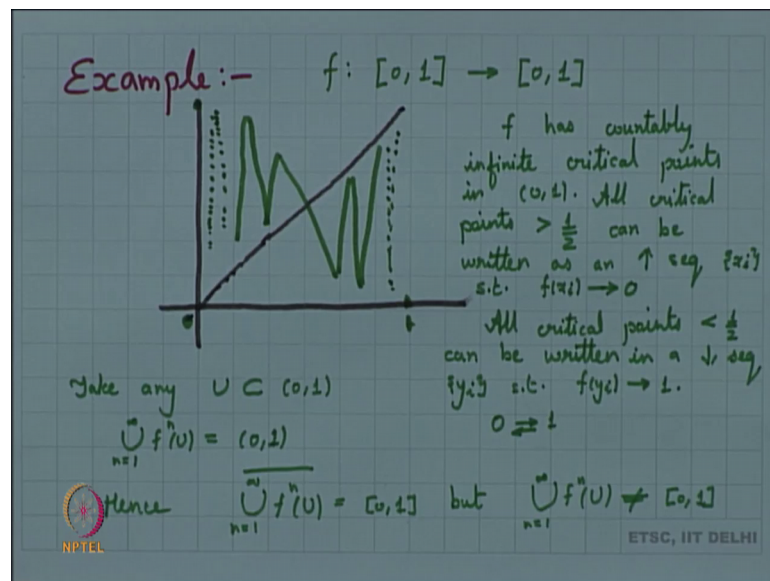 Example:-
f: [0,1] → [0,1]
f has countably
infinite critical points
in (0,1). All critical
points > 1/2 can be
written as an ↑ seq {xi}
s.t. f(xi) → 0
All critical points < 1/2
can be written in a ↓ seq
{yi} s.t. f(yi) → 1.
0 ⇄ 1
0 1
Take any U ⊂ (0,1)
∞⋃n=1 fⁿ(U) = (0,1)
Hence \overline{∞⋃n=1 fⁿ(U)} = [0,1] but ∞⋃n=1 fⁿ(U) ≠ [0,1]
NPTEL
ETSC, IIT DELHI